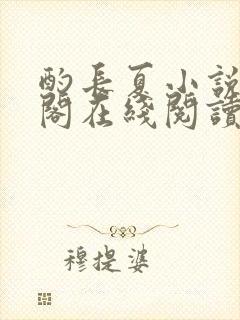 酌長夏小說
閣在綫閱讀
穆提婆